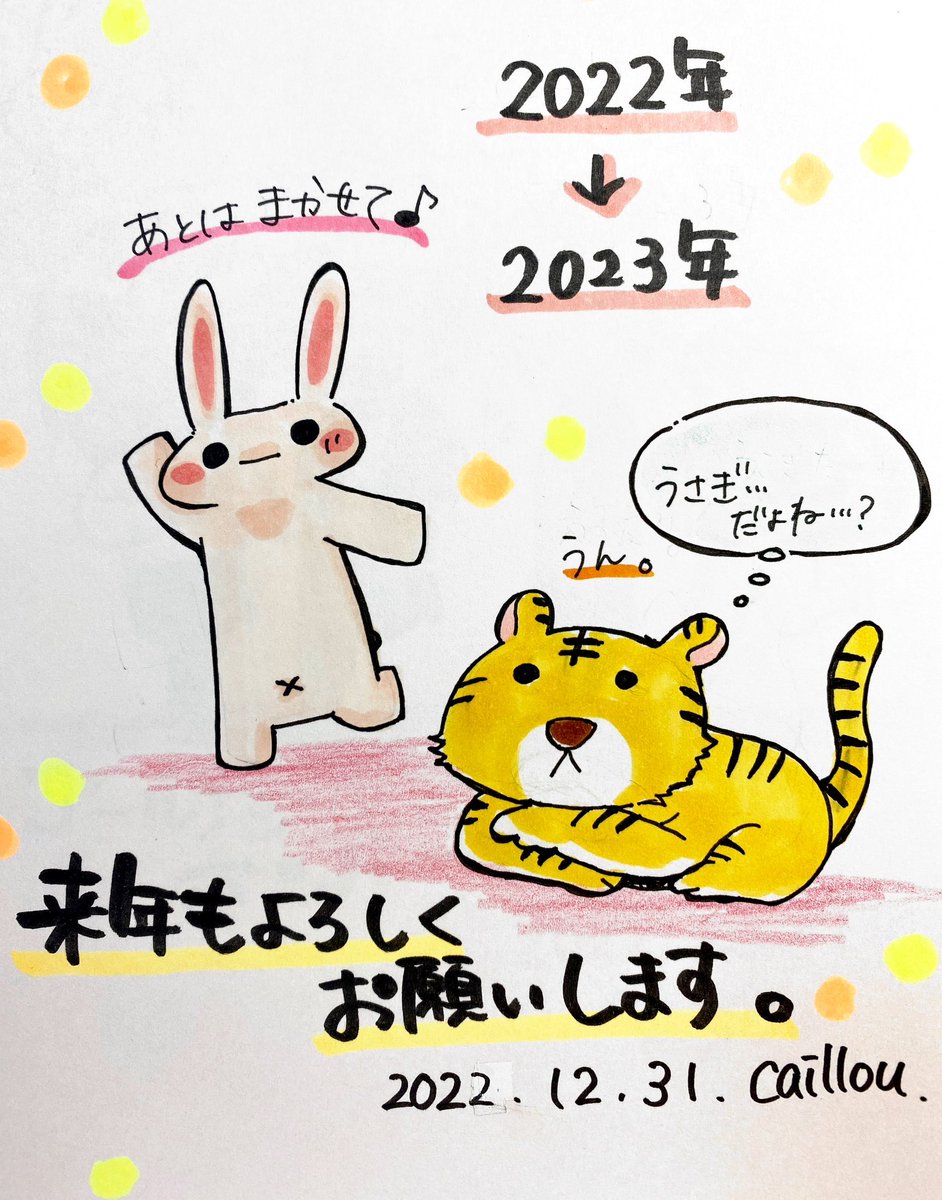 2022年
↓
2023年
あとは まかせて♪
うさぎ…
だよね…?
うん。
来年もよろしく
お願いします。
2022.12.31. Caillou.